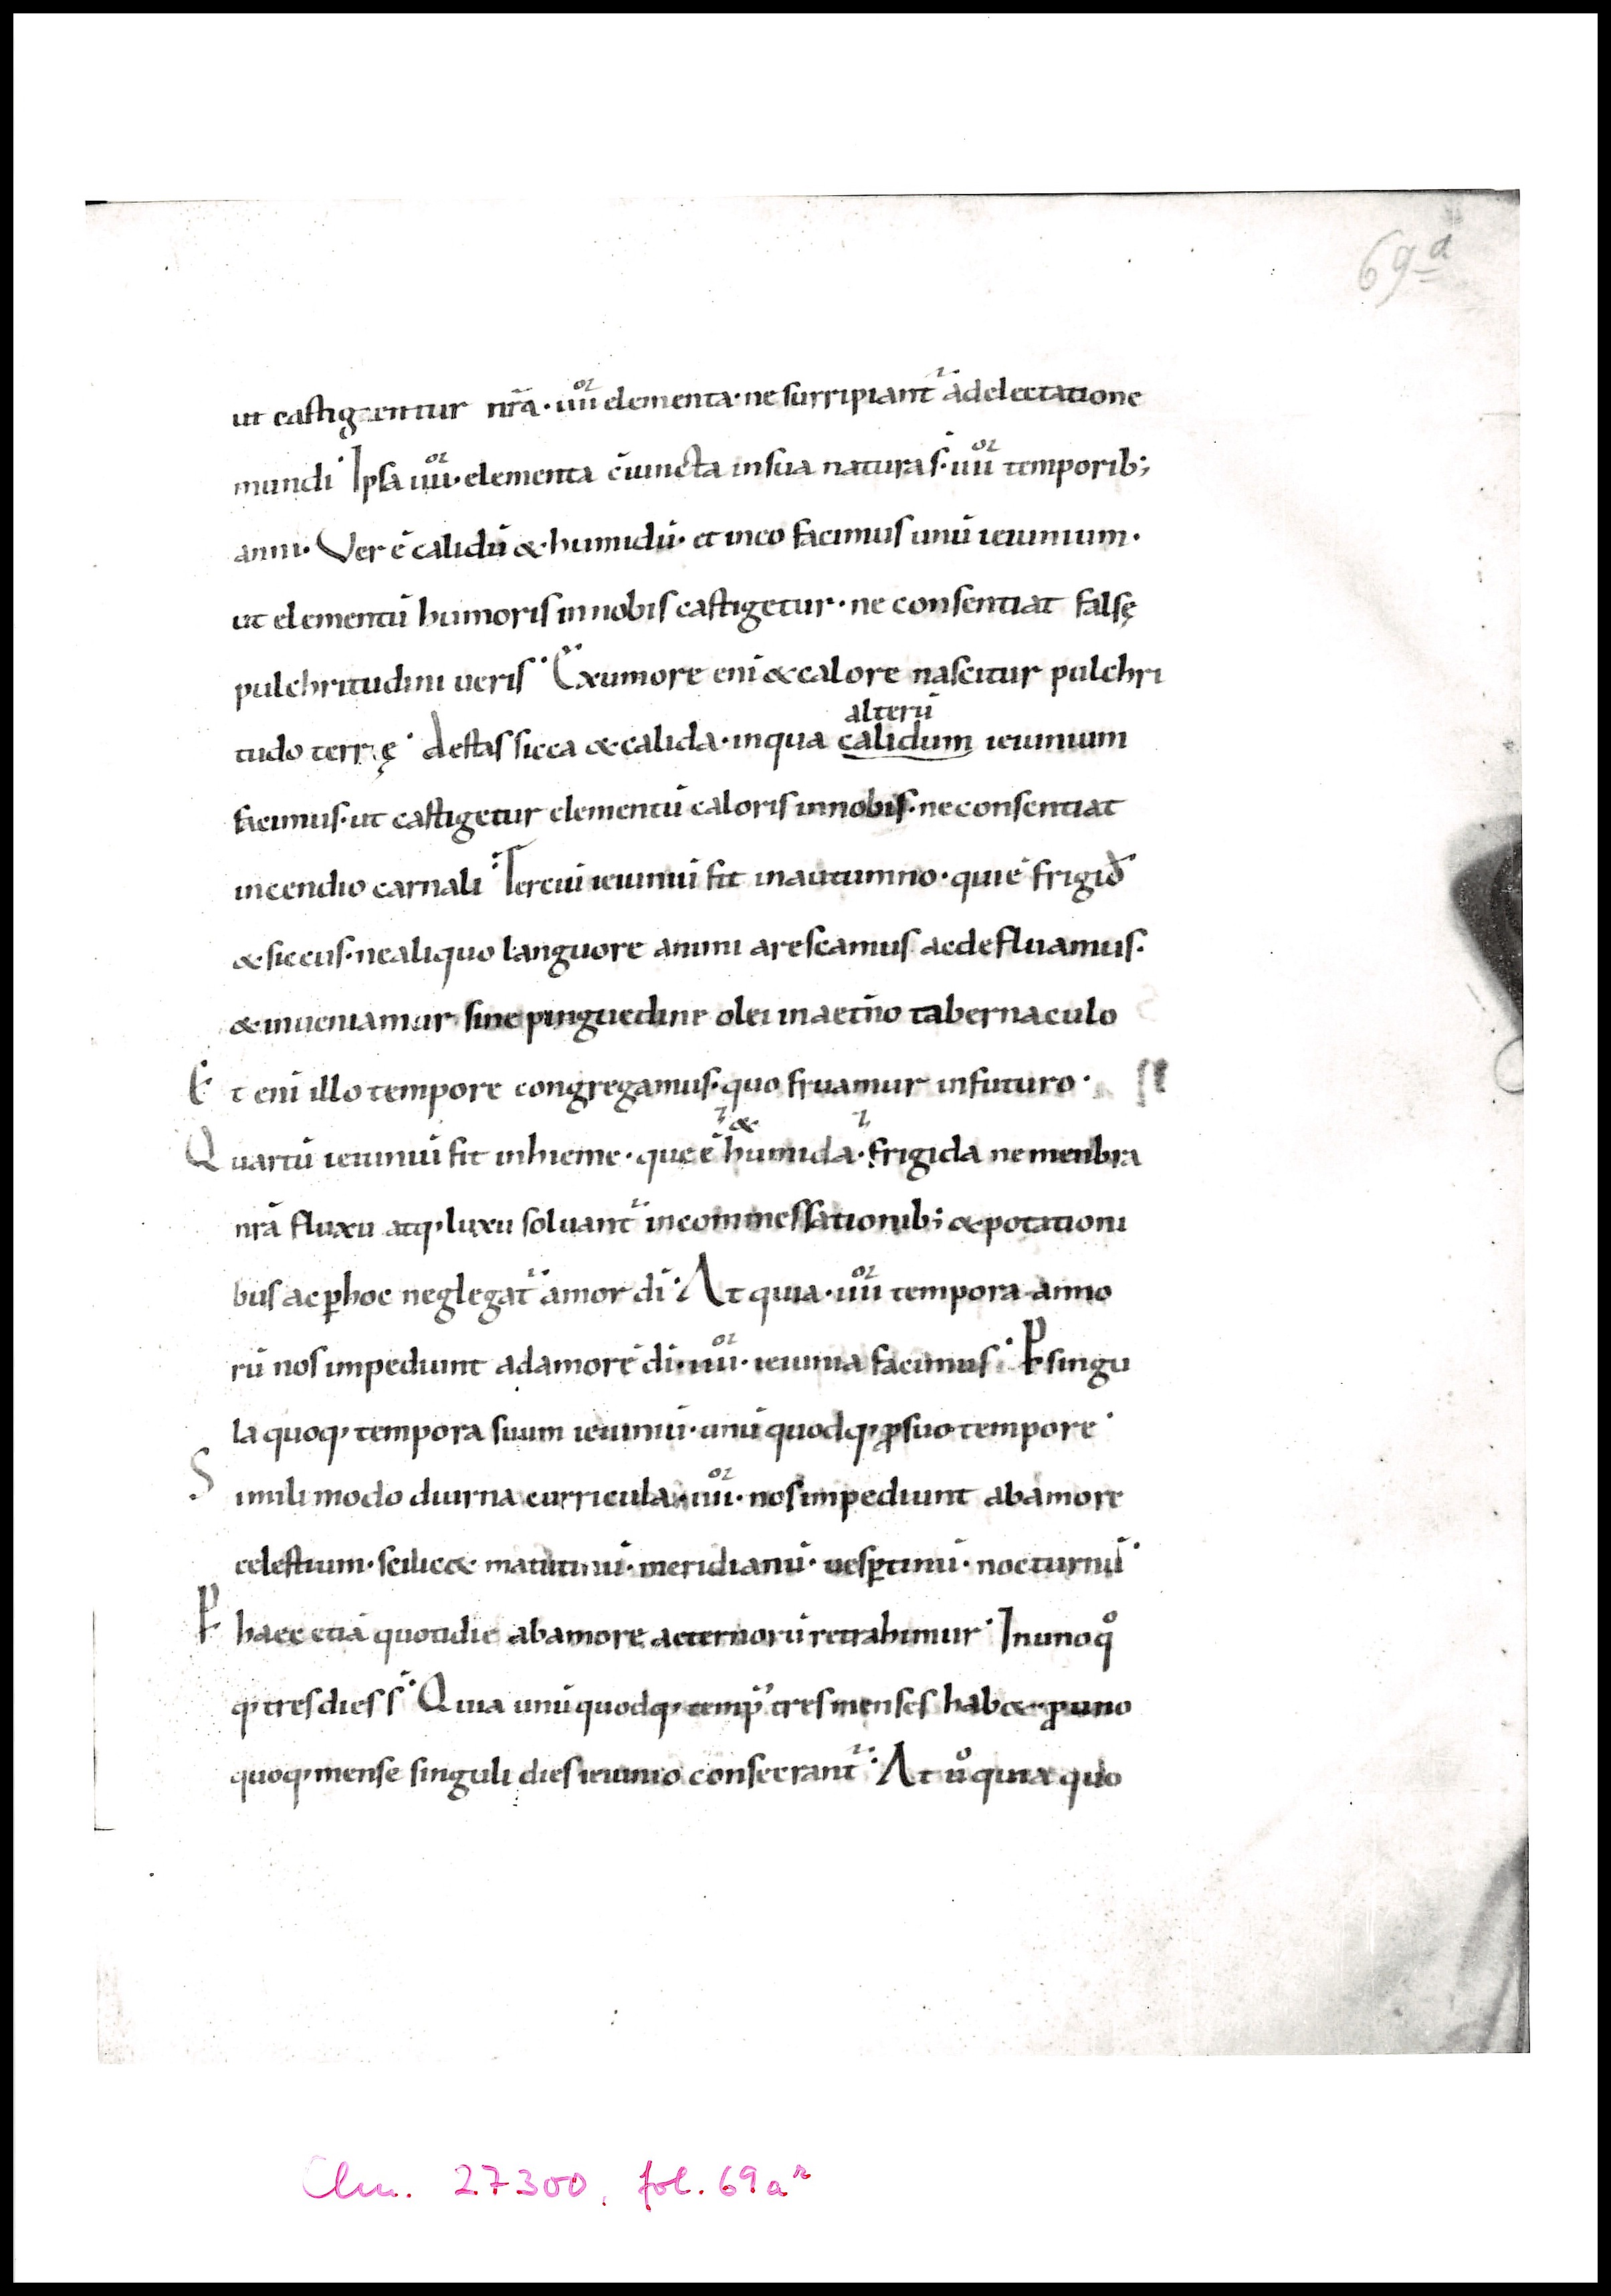 69a
ut castigentur nr̄a · iiiior elementa · ne surripiantur ad electatione
mundi · Ipsa iiiior · elementa c̄iuncta in sua natura s̄ · iiiior temporib;
anni · Ver ē calidū & humidū · et in eo facimus unū ieiunium ·
ut elementū humoris in nobis castigetur · ne consentiat falsę
pulchritudini ueris · Ex umore enī & calore nascitur pulchri
alterū
tudo terrę · Aestas sicca & calida · in qua calidum ieiunium
facimus · ut castigetur elementū caloris in nobis · ne consentiat
incendio carnali · Terciū ieiuniū fit in autumno · qui ē frigid᷒
& siccus · ne aliquo languore animi arescamus ac defluamus ·
& inueniamur sine pinguedine olei in aet̄no tabernaculo
Et enī illo tempore congregamus · quo fruamur in futuro ·
&
Quartū ieiuniū fit in hieme · que ē humida · frigida ne menbra
nr̄a fluxu atq; luxu soluant᷑ in commessationib; & potationi
bus ac ꝑ hoc neglegat᷑ amor dī · At quia · iiiior tempora anno
rū nos impediunt ad amorē dī · iiiior · ieiunia facimus · Et singu
la quoq; tempora suum ieiuniū · unū quodq; ꝓ suo tempore ·
Simili modo diurna curricula · iiiior · nos impediunt ab amore
celestium · scilic& matutinū · meridianū · uesꝑtinū · nocturnū ·
Per haec etiā quotidie ab amore aeternorū retrahimur · In uno qͦ
q; tres dies s̄ · Quia unū quodq; temp᷒ tres menses hab& · ꝓ uno
quoq; mense singuli dies ieiunio consecrant᷑ · At uͦ quia quo
Clm. 27300, fol. 69ar